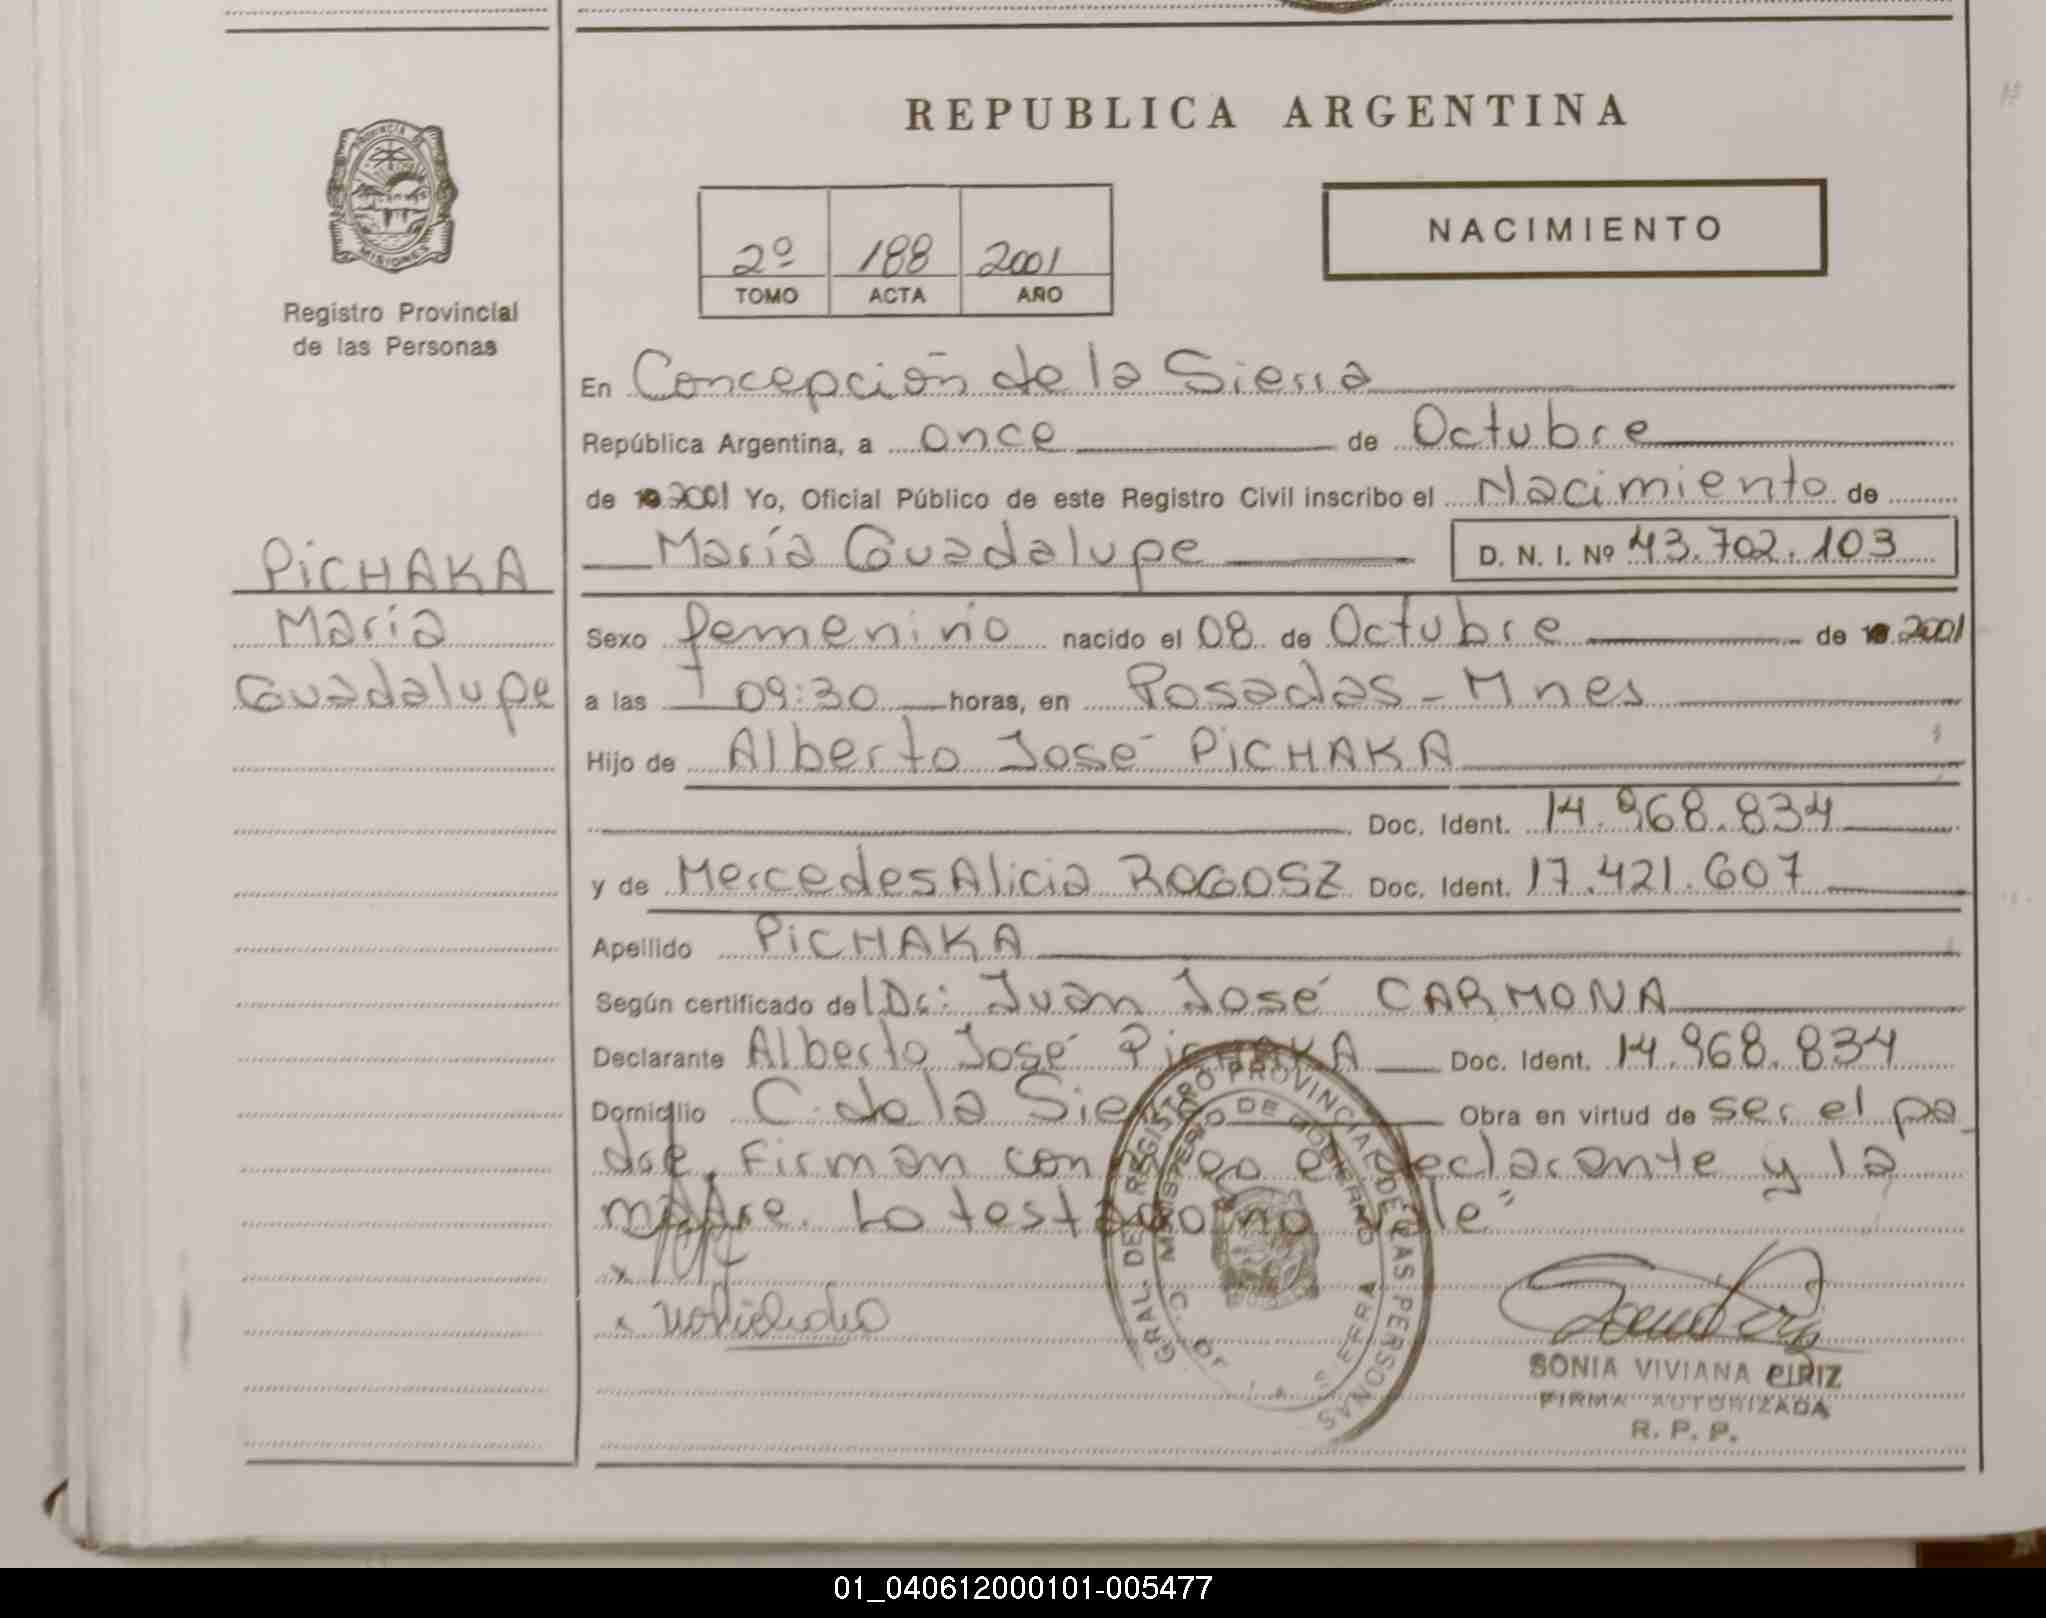 REPUBLICA ARGENTINA
PROVINCIA DE
MISIONES
Registro Provincial
de las Personas
2º 188 2001
TOMO ACTA AÑO
NACIMIENTO
En Concepción de la Sierra
República Argentina, a once de Octubre
de 19 2001 Yo, Oficial Público de este Registro Civil inscribo el Nacimiento de
María Guadalupe D. N. I. Nº 43.702.103
PiCHAKA
María
Guadalupe
Sexo femenino nacido el 08 de Octubre de 19 2001
a las 09:30 horas, en Posadas - Mnes
Hijo de Alberto José PiCHAKA
Doc. Ident. 14.968.834
y de Mercedes Alicia ROGOSZ Doc. Ident. 17.421.607
Apellido PiCHAKA
Según certificado del Dr: Juan José CARMONA
Declarante Alberto José PiCHAKA Doc. Ident. 14.968.834
Domicilio C. de la Sierra Obra en virtud de ser el pa
dre. Firman conmigo el declarante y la
madre. Lo testado "no vale"
GRAL. DEL REGISTRO PROVINCIAL DE LAS PERSONAS
MINISTERIO DE GOBIERNO
SONIA VIVIANA PIRIZ
FIRMA AUTORIZADA
R. P. P.
01_040612000101-005477